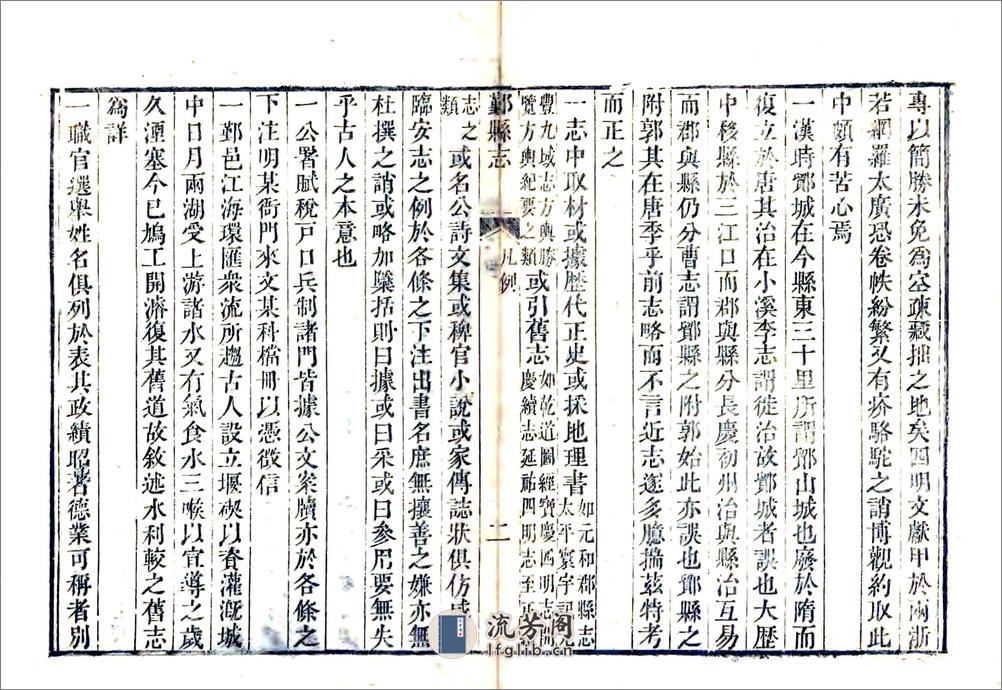 專以簡勝未免爲空疎藏拙之地矣四明文獻甲於兩浙
若網羅太廣恐卷帙紛繁又有疥駱駝之誚博觀約取此
中頗有苦心焉
一漢時鄮城在今縣東三十里所謂鄮山城也廢於隋而
復立於唐其治在小溪李志謂徙治故鄮城者誤也大歷
中移縣於三江口而郡與縣分長慶初州治與縣治互易
而郡與縣仍分曹志謂鄮縣之附郭始此亦誤也鄮縣之
附郭其在唐季乎前志略而不言近志遂多臆揣茲特考
而正之
一志中取材或據歷代正史或採地理書如元和郡縣志太平寰宇記
豐九域志方輿勝覽方輿紀要之類或引舊志如乾道圖經寶慶四明志開慶續志延祐四明志至正
鄞縣志 凡例 二
志之類或名公詩文集或稗官小說或家傳誌狀俱仿咸
臨安志之例於各條之下注出書名庶無攘善之嫌亦無
杜撰之誚或略加檃括則曰據或曰采或曰參用要無失
乎古人之本意也
一公署賦稅戸口兵制諸門皆據公文案牘亦於各條之
下注明某衙門來文某科檔冊以憑徵信
一鄞邑江海環匯衆流所趨古人設立堰碶以資灌漑城
中日月兩湖受上游諸水又有氣食水三喉以宣導之歲
久湮塞今已鳩工開濬復其舊道故敘述水利較之舊志
爲詳
一職官選舉姓名俱列於表其政績昭著德業可稱者別
流芳阁
lfglib.cn